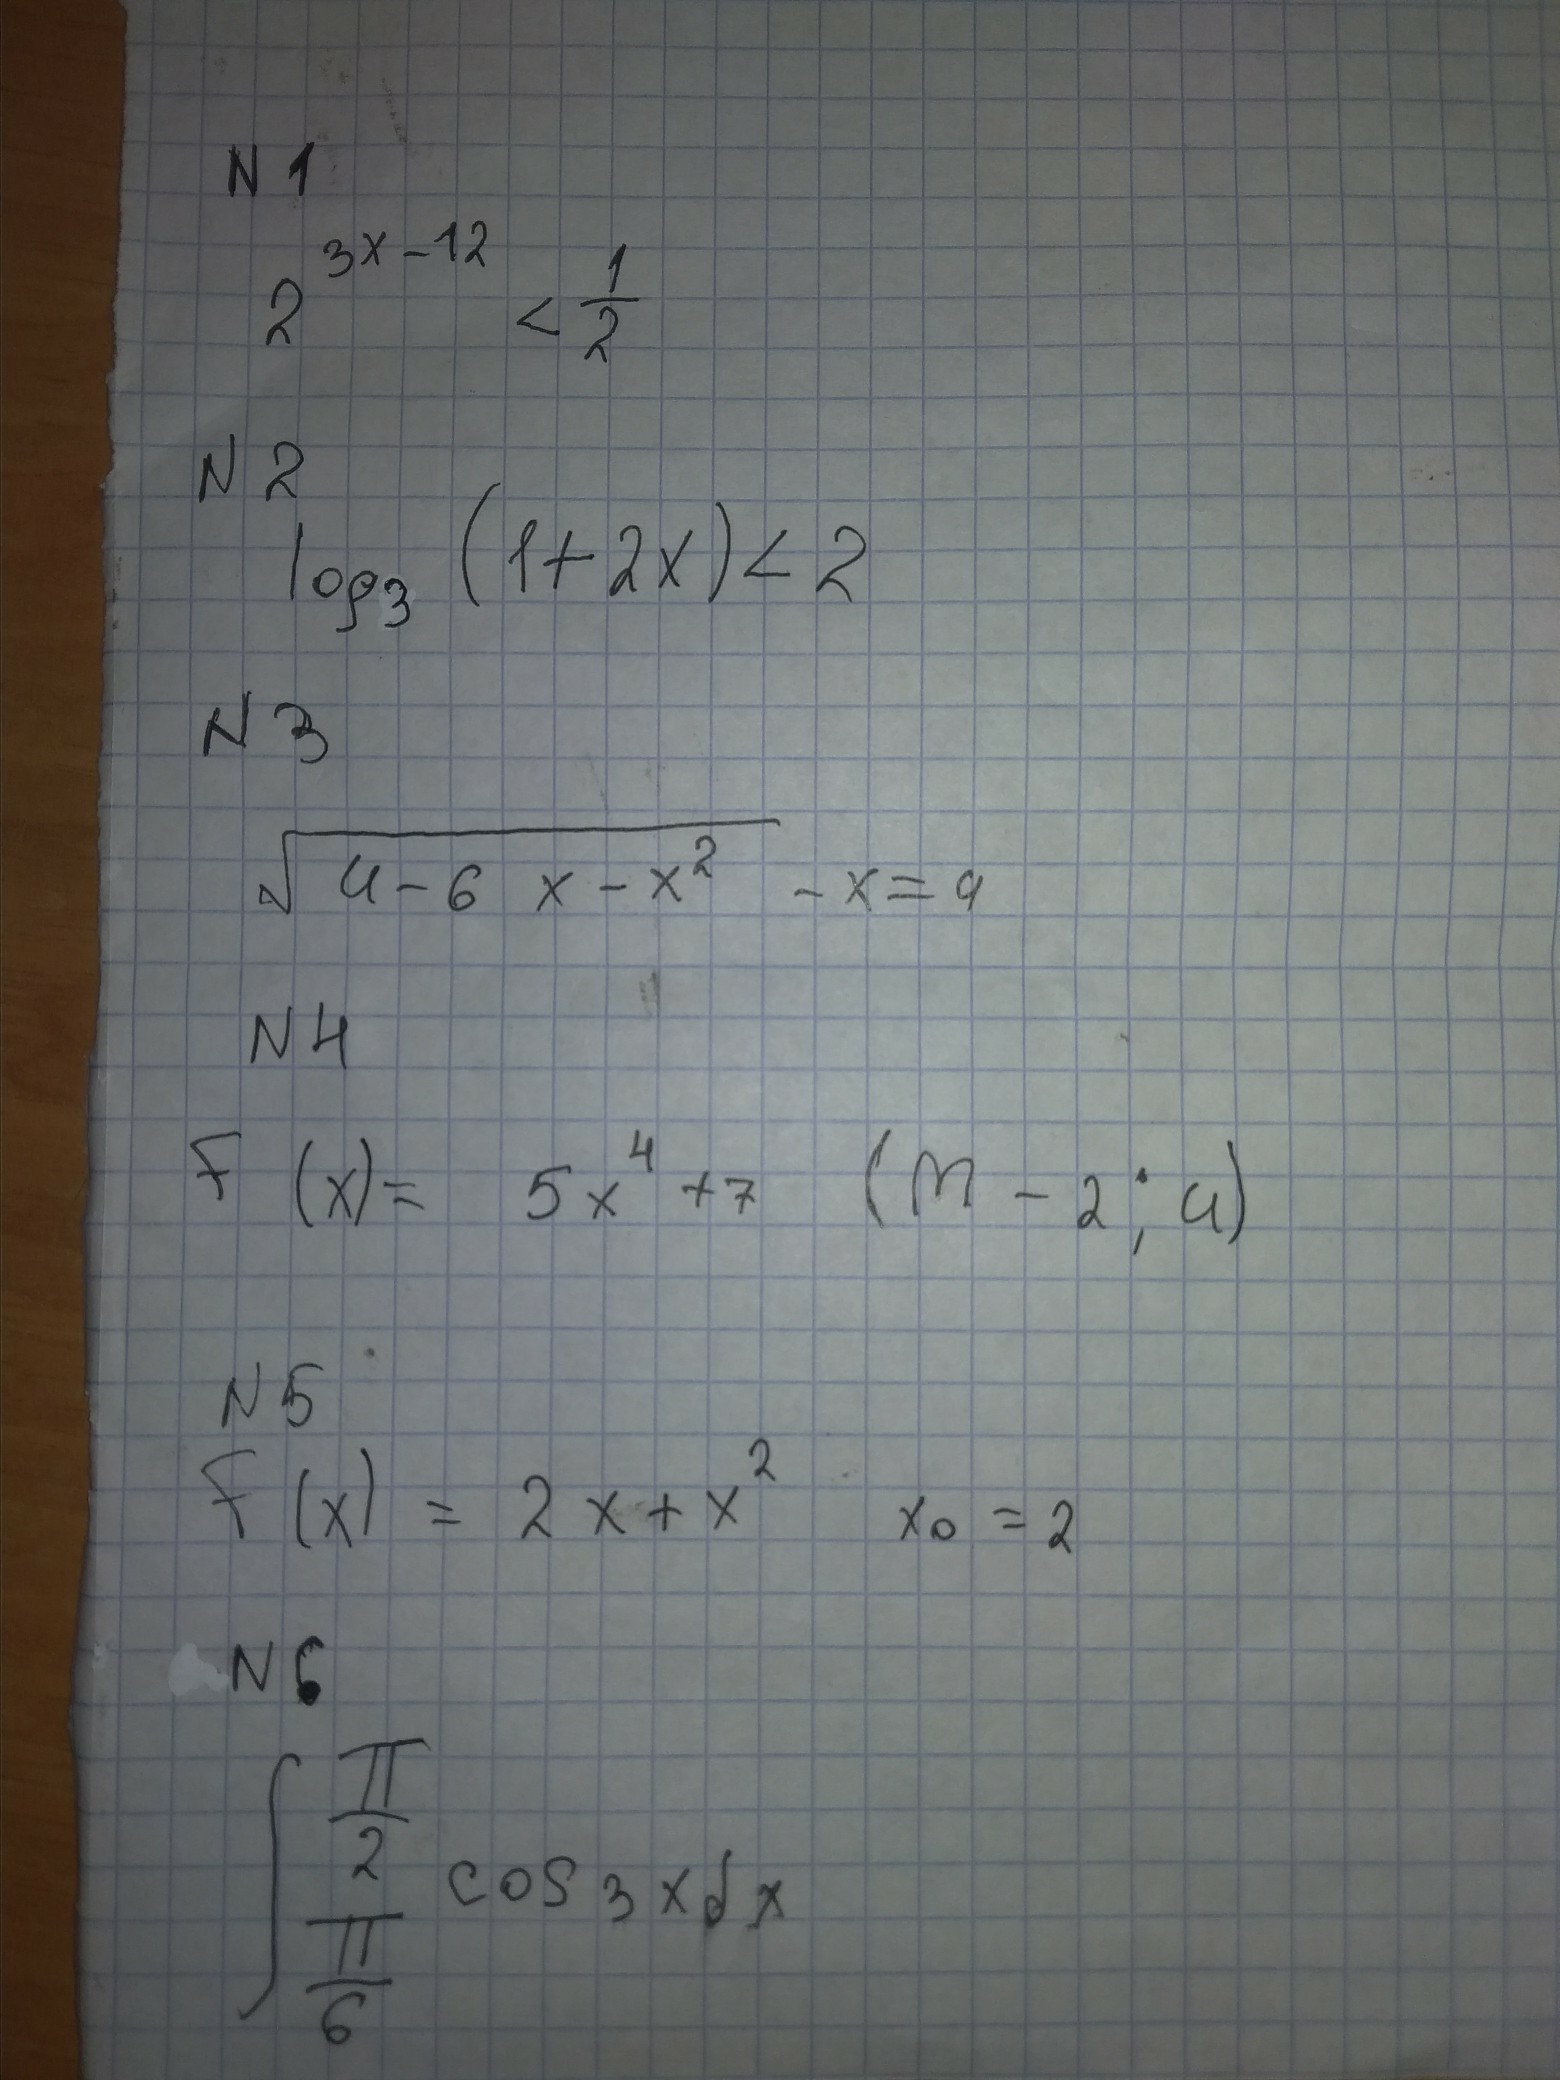 N 1
2^{3x-12} < \frac{1}{2}
N 2
log_3 (1+2x) < 2
N 3
\sqrt{4-6 x-x^2} - x = 4
N 4
F (x) = 5x^4 + 7 (M - 2; 4)
N 5
F (x) = 2x + x^2 x_0 = 2
N 6
\int_{\frac{π}{6}}^{\frac{π}{2}} cos 3 x d x